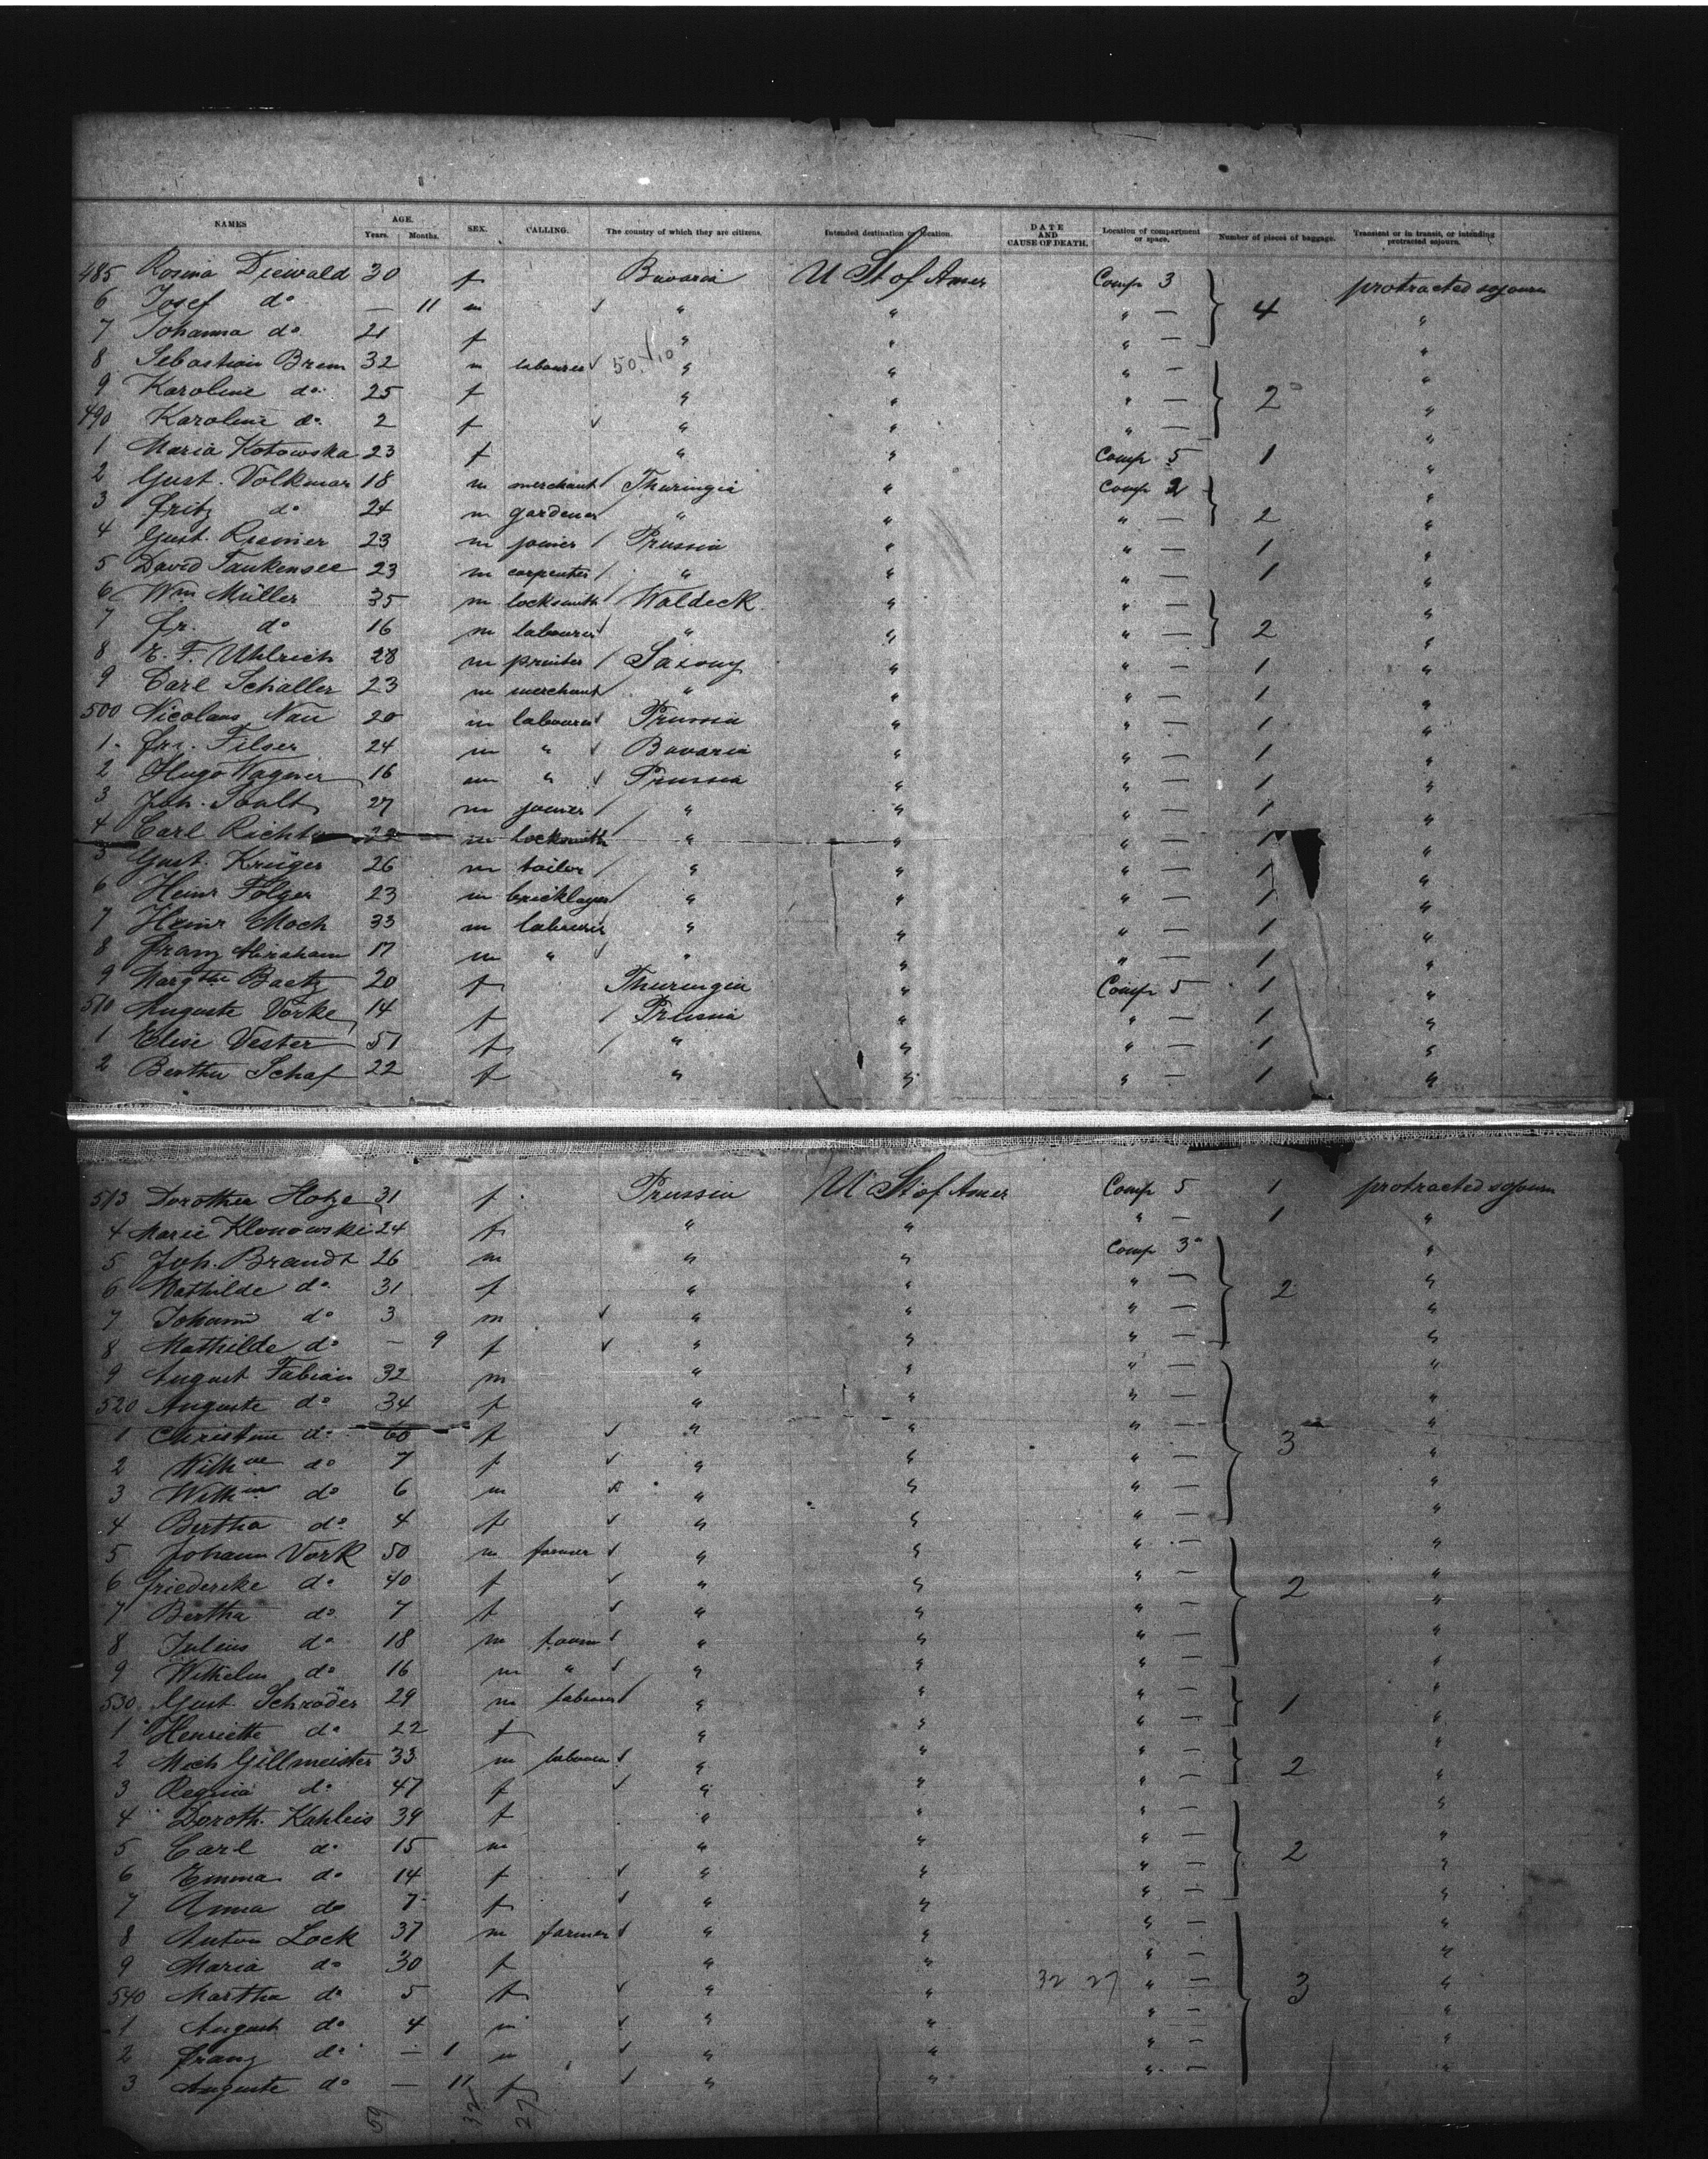 NAMES AGE. Years. Months. SEX. CALLING. The country of which they are citizens. Intended destination or location. DATE AND CAUSE OF DEATH. Location of compartment or space. Number of pieces of baggage. Transient or in transit, or intending protracted sojourn.
485 Rosina Diewald 30 f Bavaria U St of Amer Comp 3 protracted sojourn
6 Josef do — 11 m ✓ " " " — 4 "
7 Johanna do 21 f " " " — "
8 Sebastian Brem 32 m labourer ✓ 50. /10 " " " — "
9 Karoline do 25 f " " " — 2 "
490 Karoline do 2 f ✓ " " " — "
1 Maria Kotowska 23 f " " Comp 5 1 "
2 Gust. Volkmar 18 m merchant / Thuringia " Comp 2 "
3 Fritz do 24 m gardener " " " — 2 "
4 Gust. 23 m joiner / Prussia " " — 1 "
5 David Taukensee 23 m carpenter / " " " — 1 "
6 Wm Müller 35 m locksmith Waldeck " " — "
7 Fr. do 16 m labourer " " " — 2 "
8 E. F. Uhlrich 28 m printer / Saxony " " — 1 "
9 Carl Schaller 23 m merchant " " " — 1 "
500 Nicolaus Nau 20 m labourer Prussia " " — 1 "
1 Frz. Filser 24 m " ✓ Bavaria " " — 1 "
2 Hugo Wagner 16 m " ✓ Prussia " " — 1 "
3 Joh. 27 m joiner / " " " — 1 "
4 Carl Richter 22 m locksmith " " " — 1 "
5 Gust. Krüger 26 m tailor / " " " — 1 "
6 Heinr Folger 23 m bricklayer " " " — 1 "
7 Heinr Moch 33 m labourer " " " — 1 "
8 Franz Abraham 17 m " ✓ " " " — 1 "
9 Margthe Baetz 20 f Thuringia " Comp 5 1 "
510 Auguste Vorke 14 f / Prussia " " — 1 "
1 Elise Vester 51 f / " " " — 1 "
2 Bertha Schaf 22 f " " " — 1 "
513 Dorothea Hotze 31 f Prussia U St of Amer Comp 5 1 protracted sojourn
4 Marie Klonowski 24 f " " " — 1 "
5 Joh. Brandt 26 m " " Comp 3 "
6 Mathilde do 31 f " " " — 2 "
7 Johann do 3 m ✓ " " " — "
8 Mathilde do — 9 f ✓ " " " — "
9 August Fabian 32 m " " " — "
520 Auguste do 34 f " " " — "
1 Christine do 60 f ✓ " " " — 3 "
2 Wilhne do 7 f ✓ " " " — "
3 Wilhm do 6 m " " " — "
4 Bertha do 4 f ✓ " " " — "
5 Johann Vork 50 m farmer ✓ " " " — "
6 Friedericke do 40 f ✓ " " " — 2 "
7 Bertha do 7 f ✓ " " " — "
8 Julius do 18 m ✓ " " " — "
9 Wilhelm do 16 m " ✓ " " " — "
530 Gust Schröder 29 m labourer " " " — 1 "
1 Henriette do 22 f " " " — "
2 Mich Gillmeister 33 m labourer ✓ " " " — 2 "
3 Regina do 47 f ✓ " " " — "
4 Doroth. Kahleis 39 f " " " — "
5 Carl do 15 m " " " — 2 "
6 Emma do 14 f ✓ " " " — "
7 Anna do 7 f ✓ " " " — "
8 Anton Lock 37 m farmer ✓ " " " — "
9 Maria do 30 f " " " — "
540 Martha do 5 f ✓ " " 32 27 " — 3 "
1 August do 4 m ✓ " " " — "
2 Franz do — 1 m ✓ " " " — "
3 Auguste do — 11 f ✓ " " " — "
59 32 27